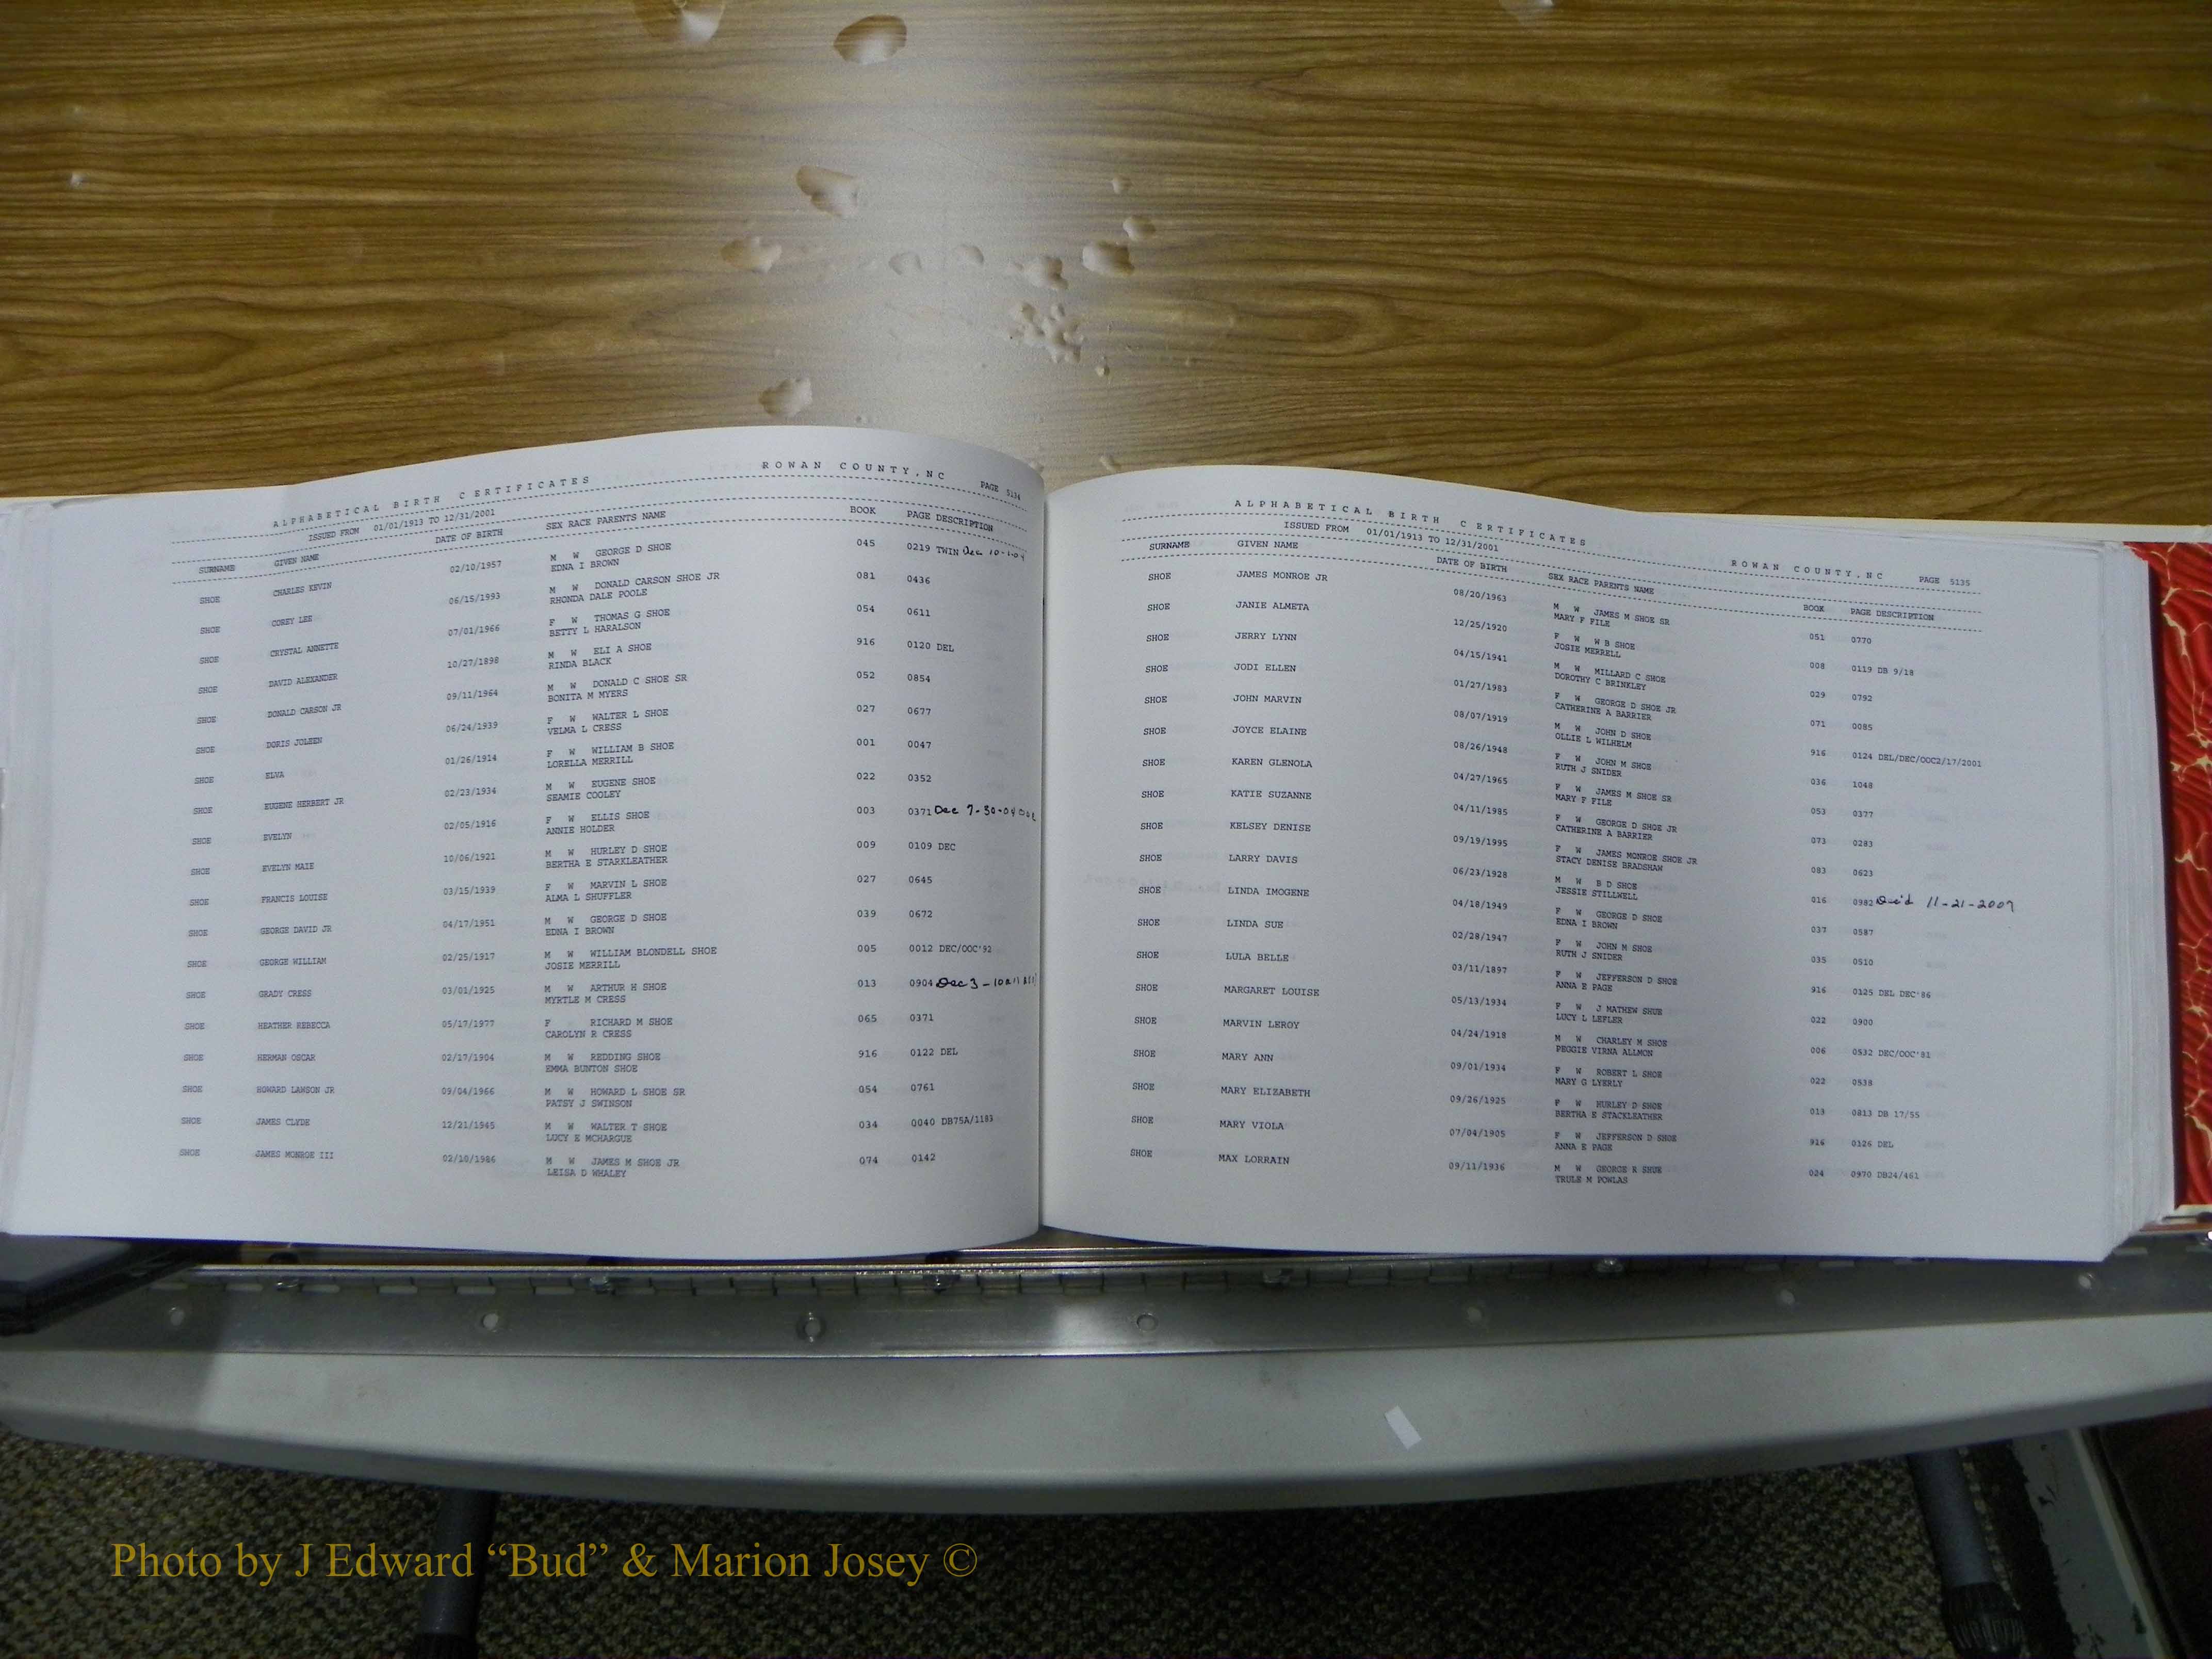 ALPHABETICAL BIRTH CERTIFICATES ROWAN COUNTY, NC PAGE 5134
ISSUED FROM 01/01/1913 TO 12/31/2001
SURNAME GIVEN NAME DATE OF BIRTH SEX RACE PARENTS NAME BOOK PAGE DESCRIPTION
SHOE CHARLES KEVIN 02/10/1957 M W GEORGE D SHOE 045 0219 TWIN Dec
EDNA I BROWN
SHOE COREY LEE 06/15/1993 M W DONALD CARSON SHOE JR 081 0436
RHONDA DALE POOLE
SHOE CRYSTAL ANNETTE 07/01/1966 F W THOMAS G SHOE 054 0611
BETTY L HARALSON
SHOE DAVID ALEXANDER 10/27/1898 M W ELI A SHOE 916 0120 DEL
RINDA BLACK
SHOE DONALD CARSON JR 09/11/1964 M W DONALD C SHOE SR 052 0854
BONITA M MYERS
SHOE DORIS JOLEEN 06/24/1939 F W WALTER L SHOE 027 0677
VELMA L CRESS
SHOE ELVA 01/26/1914 F W WILLIAM B SHOE 001 0047
LORELLA MERRILL
SHOE EUGENE HERBERT JR 02/23/1934 M W EUGENE SHOE 022 0352
SEAMIE COOLEY
SHOE EVELYN 02/05/1916 F W ELLIS SHOE 003 0371 Dec 7-30-04
ANNIE HOLDER
SHOE EVELYN MAIE 10/06/1921 M W HURLEY D SHOE 009 0109 DEC
BERTHA E STARKLEATHER
SHOE FRANCIS LOUISE 03/15/1939 F W MARVIN L SHOE 027 0645
ALMA L SHUFFLER
SHOE GEORGE DAVID JR 04/17/1951 M W GEORGE D SHOE 039 0672
EDNA I BROWN
SHOE GEORGE WILLIAM 02/25/1917 M W WILLIAM BLONDELL SHOE 005 0012 DEC/OOC'92
JOSIE MERRILL
SHOE GRADY CRESS 03/01/1925 M W ARTHUR H SHOE 013 0904 Dec 3-10
MYRTLE M CRESS
SHOE HEATHER REBECCA 05/17/1977 F RICHARD M SHOE 065 0371
CAROLYN R CRESS
SHOE HERMAN OSCAR 02/17/1904 M W REDDING SHOE 916 0122 DEL
EMMA BUNTON SHOE
SHOE HOWARD LAWSON JR 09/04/1966 M W HOWARD L SHOE SR 054 0761
PATSY J SWINSON
SHOE JAMES CLYDE 12/21/1945 M W WALTER T SHOE 034 0040 DB75A/1193
LUCY E MCHARGUE
SHOE JAMES MONROE III 02/10/1986 M W JAMES M SHOE JR 074 0142
LEISA D WHALEY
ALPHABETICAL BIRTH CERTIFICATES ROWAN COUNTY, NC PAGE 5135
ISSUED FROM 01/01/1913 TO 12/31/2001
SURNAME GIVEN NAME DATE OF BIRTH SEX RACE PARENTS NAME BOOK PAGE DESCRIPTION
SHOE JAMES MONROE JR 08/20/1963 M W JAMES M SHOE SR 051 0770
MARY F FILE
SHOE JANIE ALMETA 12/25/1920 F W W B SHOE 008 0119 DB 9/18
JOSIE MERRELL
SHOE JERRY LYNN 04/15/1941 M W MILLARD C SHOE 029 0792
DOROTHY C BRINKLEY
SHOE JODI ELLEN 01/27/1983 F W GEORGE D SHOE JR 071 0085
CATHERINE A BARRIER
SHOE JOHN MARVIN 08/07/1919 M W JOHN D SHOE 916 0124 DEL/DEC/OOC2/17/2001
OLLIE L WILHELM
SHOE JOYCE ELAINE 08/26/1948 F W JOHN M SHOE 036 1048
RUTH J SNIDER
SHOE KAREN GLENOLA 04/27/1965 F W JAMES M SHOE SR 053 0377
MARY F FILE
SHOE KATIE SUZANNE 04/11/1985 F W GEORGE D SHOE JR 073 0283
CATHERINE A BARRIER
SHOE KELSEY DENISE 09/19/1995 F W JAMES MONROE SHOE JR 083 0623
STACY DENISE BRADSHAW
SHOE LARRY DAVIS 06/23/1928 M W B D SHOE 016 0982 Dec'd 11-21-2007
JESSIE STILLWELL
SHOE LINDA IMOGENE 04/18/1949 F W GEORGE D SHOE 037 0587
EDNA I BROWN
SHOE LINDA SUE 02/28/1947 F W JOHN M SHOE 035 0510
RUTH J SNIDER
SHOE LULA BELLE 03/11/1897 F W JEFFERSON D SHOE 916 0125 DEL DEC'86
ANNA E PAGE
SHOE MARGARET LOUISE 05/13/1934 F W J MATHEW SHUE 022 0900
LUCY L LEFLER
SHOE MARVIN LEROY 04/24/1918 M W CHARLEY M SHOE 006 0532 DEC/OOC'81
PEGGIE VIRNA ALLMON
SHOE MARY ANN 09/01/1934 F W ROBERT L SHOE 022 0538
MARY G LYERLY
SHOE MARY ELIZABETH 09/26/1925 F W HURLEY D SHOE 013 0813 DB 17/55
BERTHA E STACKLEATHER
SHOE MARY VIOLA 07/04/1905 F W JEFFERSON D SHOE 916 0126 DEL
ANNA E PAGE
SHOE MAX LORRAIN 09/11/1936 M W GEORGE R SHUE 024 0970 DB24/461
TRULE M POWLAS
Photo by J Edward “Bud” & Marion Josey ©